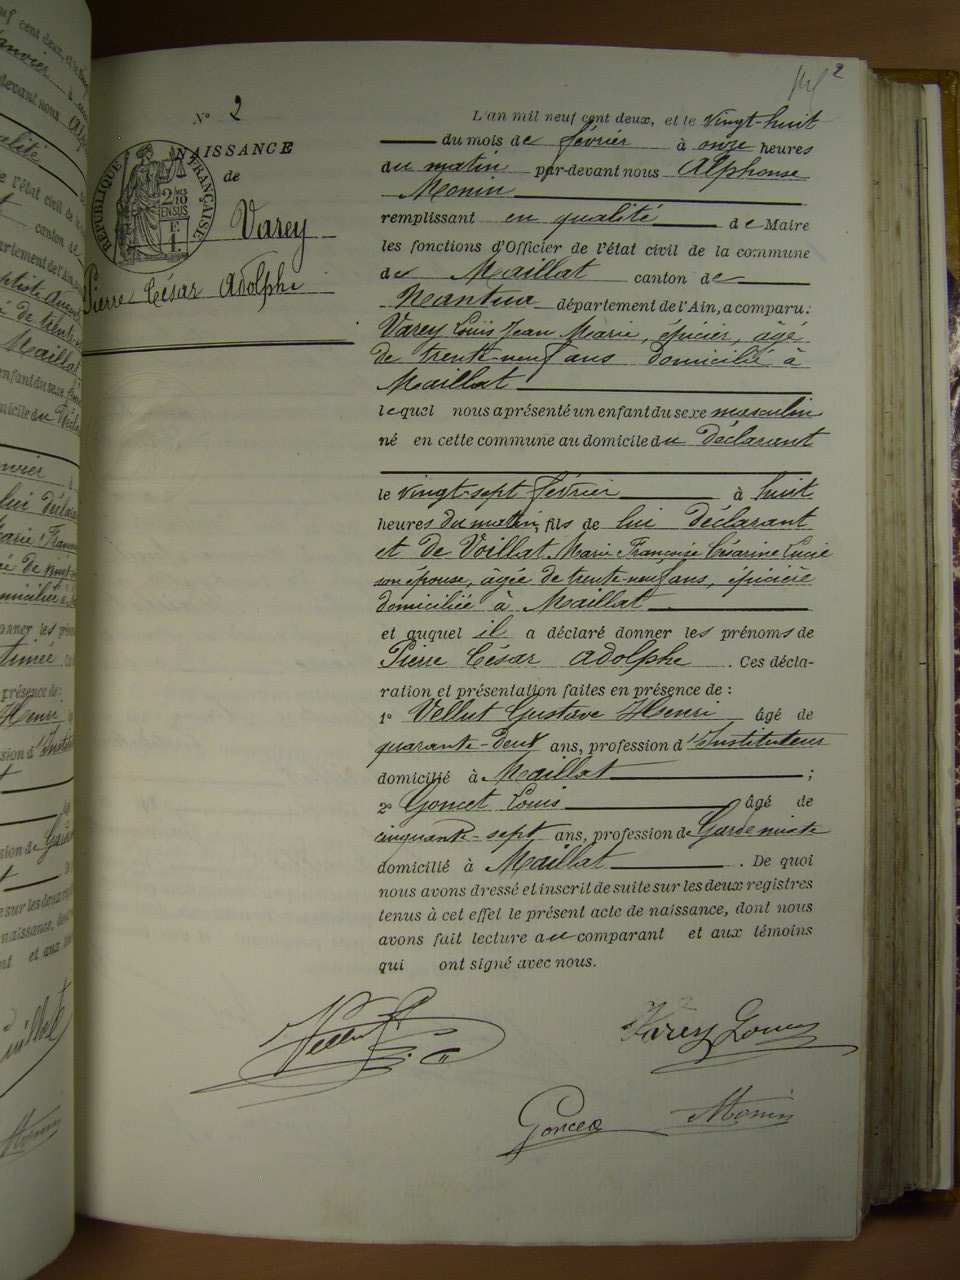 2
N° 2
NAISSANCE
de
RÉPUBLIQUE FRANÇAISE
2 10
EN SUS
Varey
Pierre César Adolphe
L'an mil neuf cent deux, et le vingt-huit
du mois de février à onze heures
du matin par-devant nous Alphonse
Monin
remplissant en qualité de Maire
les fonctions d'Officier de l'état civil de la commune
de Maillat canton de
Nantua département de l'Ain, a comparu:
Varey Louis Jean Marie, épicier, âgé
de trente-neuf ans domicilié à
Maillat
lequel nous a présenté un enfant du sexe masculin
né en cette commune au domicile du déclarant
le vingt-sept février à huit
heures du matin, fils de lui déclarant
et de Voillat Marie Françoise Césarine Lucie
son épouse, âgée de trente-neuf ans, épicière
domiciliée à Maillat
et auquel il a déclaré donner les prénoms de
Pierre César Adolphe. Ces décla-
ration et présentation faites en présence de:
1° Vellut Gustave Henri âgé de
quarante-deux ans, profession d'Instituteur
domicilié à Maillat;
2° Goncet Louis âgé de
cinquante-sept ans, profession de Garde mixte
domicilié à Maillat. De quoi
nous avons dressé et inscrit de suite sur les deux registres
tenus à cet effet le présent acte de naissance, dont nous
avons fait lecture au comparant et aux témoins
qui ont signé avec nous.
Vellut
Varey Louis
Goncet Monin